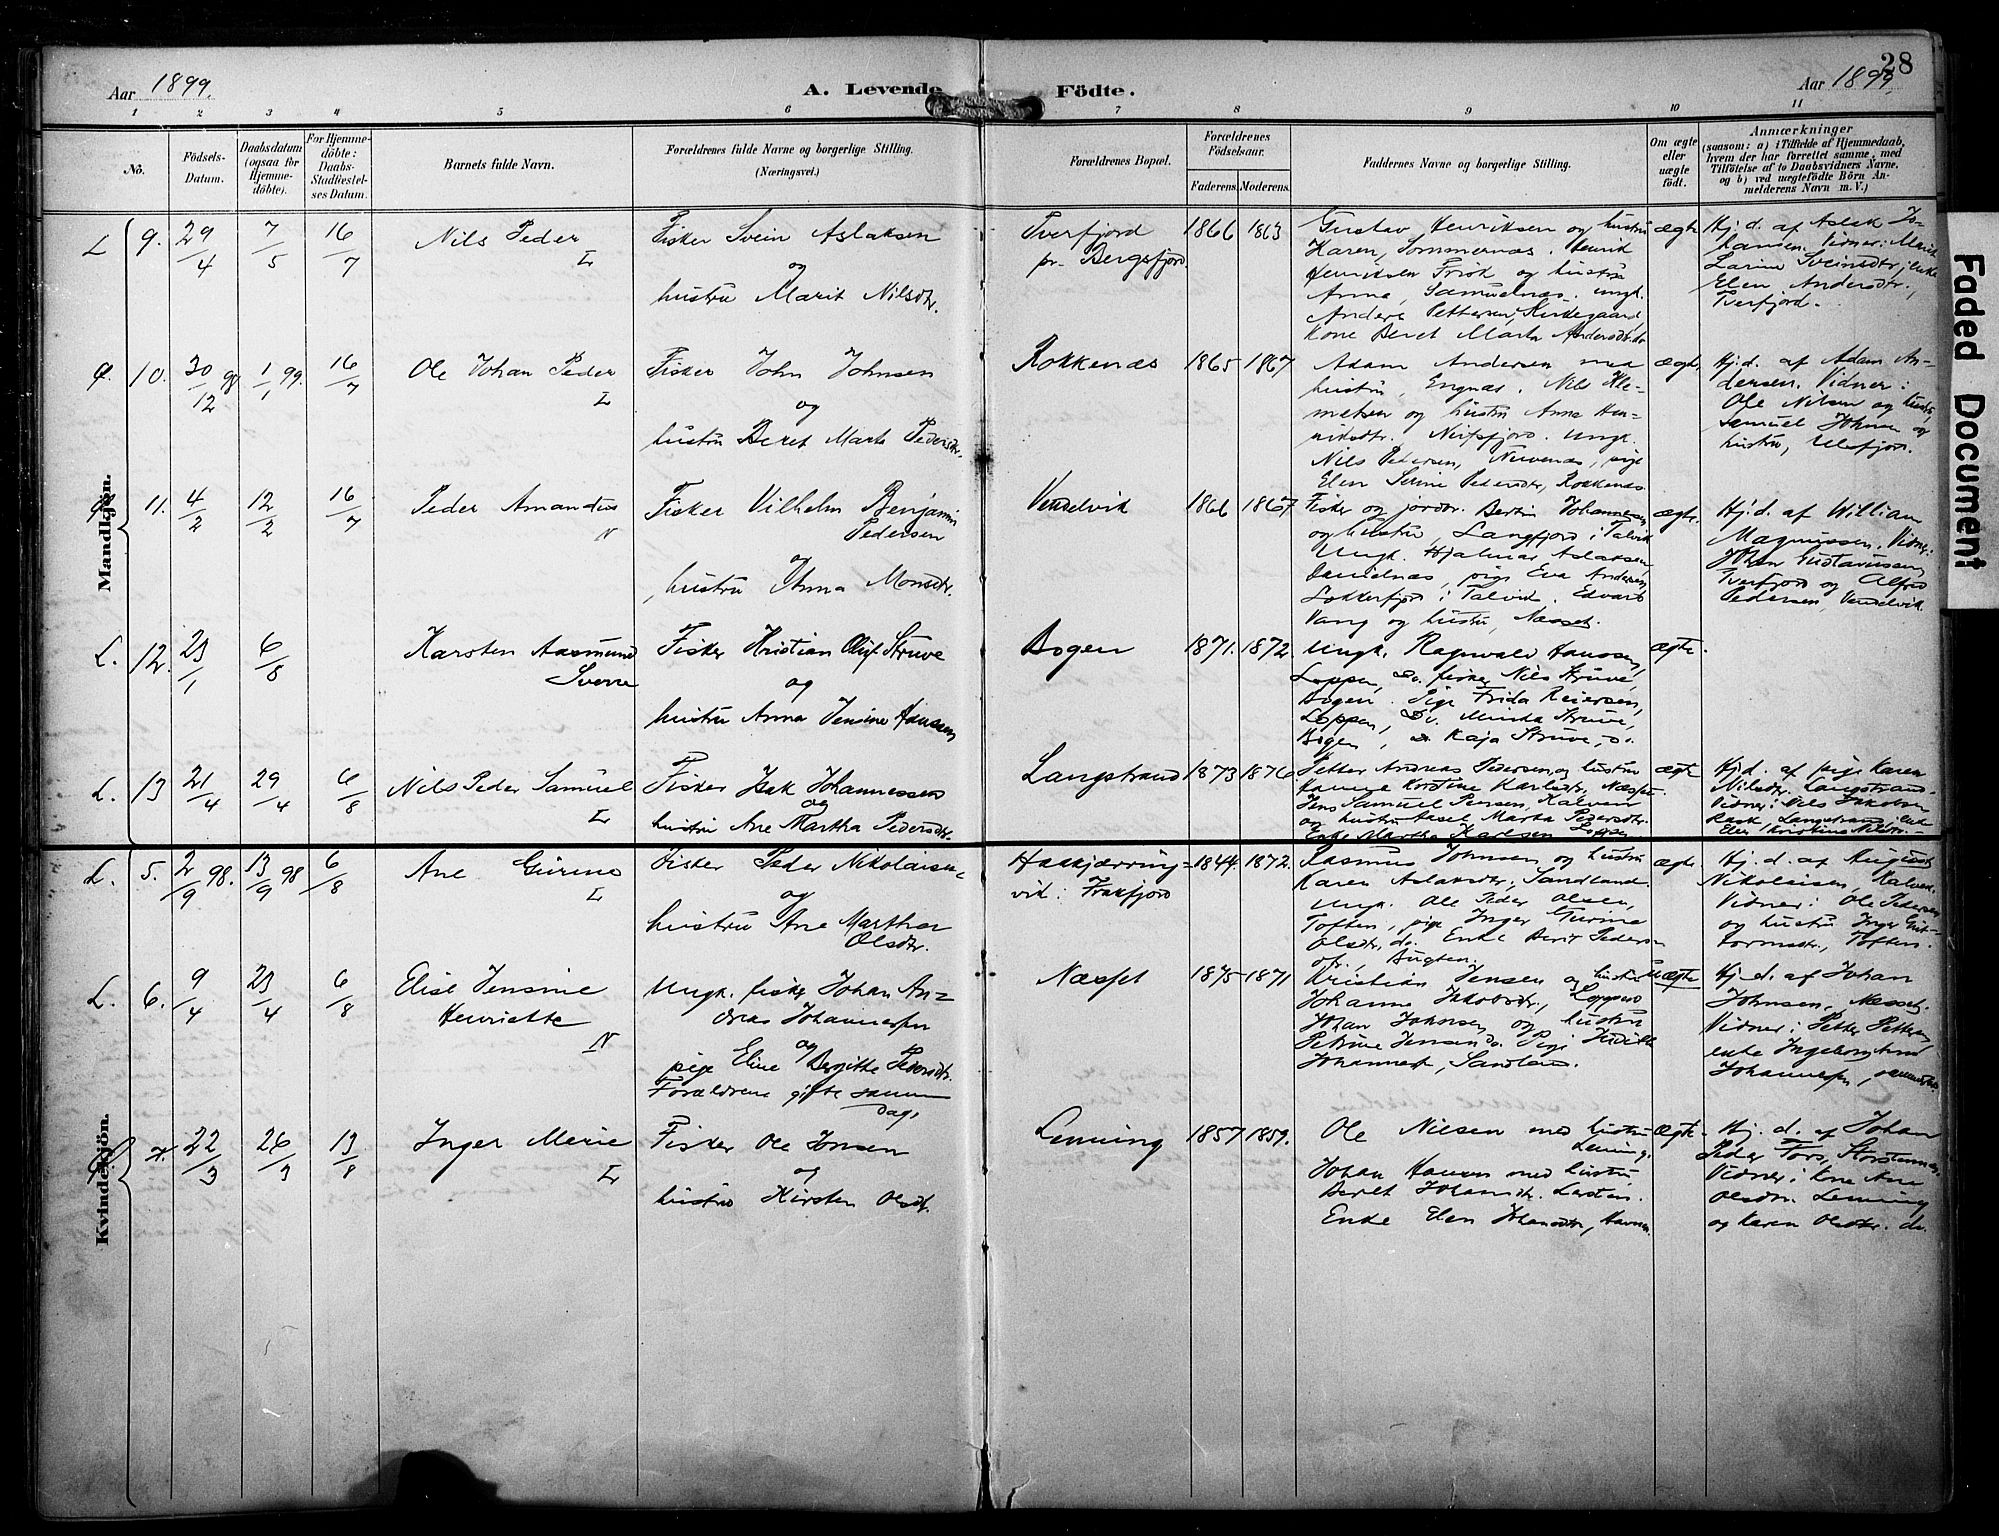 28
Aar 1899.
A. Levende Födte.
Aar 1899.
1 2 3 4 5 6 7 8 9 10 11
No.
Födsels-
Datum.
Daabsdatum
(ogsaa for
Hjemme-
döbte).
For Hjemme-
döbte:
Daabs-
Stadfæstel-
ses Datum.
Barnets fulde Navn.
Forældrenes fulde Navne og borgerlige Stilling.
(Næringsvei.)
Forældrenes Bopæl.
Forældrenes
Födselsaar.
Faderens. Moderens.
Faddernes Navne og borgerlige Stilling.
Om ægte
eller
uægte
födt.
Anmærkninger
(saasom: a) i Tilfælde af Hjemmedaab,
hvem der har forrettet samme, med
Tilföielse af to Daabsvidners Navne,
og b) ved uægtefödte Börn An-
melderens Navn m. V.)
Mandkjön.
L 9. 29/4 7/5 16/7
Nils Peder
L
Fisker Svein Aslaksen
og
hustru Marit Nilsdtr.
Tverfjord
pr. Bergsfjord
1866 1863
Gustav Henriksen og hustru
Karen, Sommernæs. Henrik
Henriksen Frisk og hustru
Anna, Samuelnæs. ungk.
Anders Pettersen, Kirkegaard,
Kone Beret Marta Andersdtr. do
ægte
Hj. d. af Aslak Jo-
hansen. Vidner: Marit
Larine Sveinsdtr., enke
Elen Andersdtr.,
Tverfjord.
10. 30/12 98 1/1 99. 16/7
Ole Johan Peder
L
Fisker John Johnsen
og
hustru Beret Marta Pedersdtr.
Rokkenæs
1865 1867
Adam Andersen med
hustru, Engnæs. Nils Kle-
metsen og hustru Anna Hen-
riksdtr. Ungk.
Nils Pedersen, pige
Elen Serine Pedersdtr, Rokkenæs
ægte
Hj. d. af Adam An-
dersen. Vidner:
Ole Nilsen og hustru,
Samuel Johnsen og
hustru, Ulsfjord.
11. 4/2 12/2 16/7
Peder Amandus
N
Fisker Vilhelm Benjamin
Pedersen
og
hustru Anna Monsdtr.
Vendelvik
1866 1867
Fisker og jordbr. Bertin Johannesen
og hustru, Langfjord i Talvik
Ungk. Hjalmar Aslaksen
Danielnæs, pige Eva Andersen,
i Talvik. Edvard
Vang og hustru, Næsset.
ægte.
Hj. d. af William
Magnussen. Vidner:
Johan Gustavussen,
Tverfjord og Alfred
Pedersen, Vendelvik.
L. 12. 23/1 6/8
Karsten Aasmund
Sverre
Fisker Kristian Oluf Struve
og
hustru Anna Jensine Hansen
Bogen
1871. 1872
Ungk. Ragnvald Hanssen,
Loppen, Do. fisker Nils Struve,
Bogen. Pige Frida Reiersen,
Loppen, Do. Minda Struve,
Bogen, do Kaja Struve, do.
ægte.
L. 13 21/4 29/4 6/8
Nils Peder Samuel
L
Fisker Isak Johannessen
og
hustru Ane Martha Pedersdtr.
Langstrand
1873 1876
Petter Andreas Pedersen og hustru
Kortine Karlsdtr, Næsset.
Jens Samuel Persen, Kalven
og hustru Marta Pedersdtr.
Enke Martha Karlsen Loppen
ægte
Hj. d. af pige Karen
Nilsdtr. Langstrand
Vidner: Nils Jakobsen
Rask, Langstrand, enke
Elen Kristina Nilsdtr.
Kvindekjön.
L. 5. 2/9 98. 13/9 98 6/8
Ane Gurine
L
Fisker Peder Nikolaisen
og
hustru Ane Martha
Olsdtr.
Haakjærring=
vik: Frakfjord
1844. 1872.
Rasmus Johnsen og hustru
Karen Aslaksdtr., Sandland.
Ungk. Ole Peder Olsen,
Toften, pige Inger Gurine
Olsdtr, do. Enke Berit Peders-
dtr., Bugten.
ægte
Hj. d. af August
Nikolaisen, Kalven.
Vidner: Ole Pedersen
og hustru Inger Gut-
tormsdtr., Toften.
L. 6. 9/4 23/4 6/8
Elise Jensine
Henriette
N
Ungk. fisker Johan An=
dreas Johannessen
og
pige Eline Bergitte Pedersdtr.
Forældrene gifte samme
dag.
Næsset
1875 1871
Kristian Jensen og hustru
Johanna Jakobsdtr., Loppen
Johan Johnsen og hustru
Petrine Jensen do. Pige Judith
Johannesen, Sandland.
Uægte
Hj. d. af Johan
Johnsen, Næsset.
Vidner: Petter Pettersen,
enke Ingeborg
Johannessen, sammesteds
7. 22/3 26/3 13/8
Inger Merie
L
Fisker Ole Jonsen
og
hustru Kirsten Olsdtr.
Lenning
1857 1859.
Ole Nilsen med hustru
Lenning.
Johan Hansen med hustru
Beret Johansdtr.
Enke Elen Johansdtr, Havnen
Ægte.
Hj. d. af Johan
Peder Fors, Storstennes,
Vidner: Kone Ane
Olsdtr. Lenning
og Karen Olsdtr. do.
Faded Document